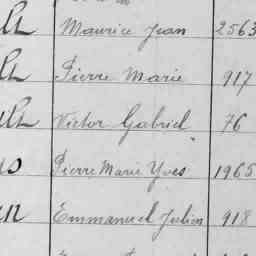 Maurice Jean 2563
Pierre Marie 917
Victor Gabriel 76
Pierre Marie Yves 1965
Emmanuel Julien 918